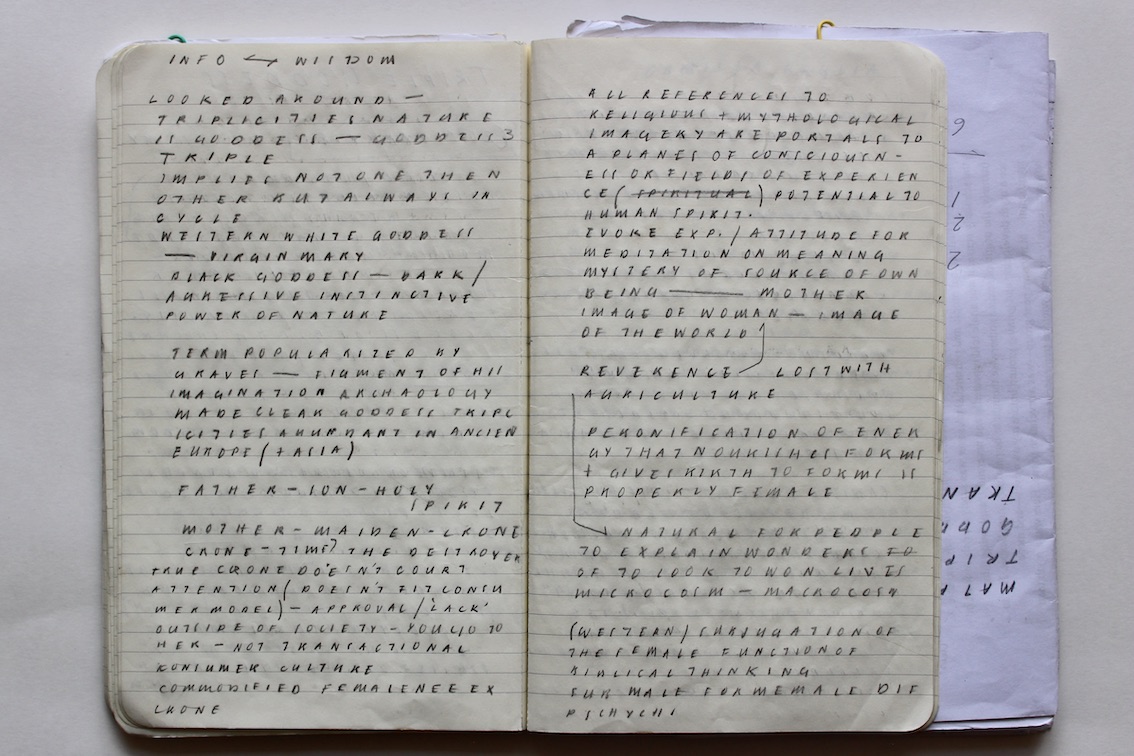 INFO ↔ WISDOM
LOOKED AROUND —
TRIPLICITIES NATURE
IS GODDESS — GODDESS 3
TRIPLE
IMPLIES NOT ONE THEN
OTHER BUT ALWAYS IN
CYCLE
WESTERN WHITE GODDESS
— VIRGIN MARY
BLACK GODDESS — DARK/
AGRESSIVE INSTINCTIVE
POWER OF NATURE
TERM POPULARIZED BY
GRAVES — FIGMENT OF HIS
IMAGINATION ARCHAOLOGY
MADE CLEAR GODDESS TRIPL
ICITIES ABUNDANT IN ANCIEN
EUROPE (+ ASIA)
FATHER – SON – HOLY
SPIRIT
MOTHER – MAIDEN – CRONE
CRONE – TIME? THE DESTROYER
TRUE CRONE DOESN'T COURT
ATTENTION (DOESN'T FIT CONSU
MER MODEL) – APPROVAL / 'LACK'
OUTSIDE OF SOCIETY – YOU GO TO
HER – NOT TRANSACTIONAL
KONSUMER CULTURE
COMMODIFIED FEMALENEE EX
CRONE
ALL REFERENCES TO
RELIGIOUS + MYTHOLOGICAL
IMAGERY ARE PORTALS TO
A PLANES OF CONSCIOUSN –
ESS OR FIELDS OF EXPERIEN
CE (SPIRITUAL) POTENTIAL TO
HUMAN SPIRIT.
EVOKE EXP. / ATTITUDE FOR
MEDITATION ON MEANING
MYSTERY OF SOURCE OF OWN
BEING —— MOTHER
IMAGE OF WOMAN — IMAGE
OF THE WORLD
REVERENCE LOST WITH
AGRICULTURE
PERONIFICATION OF ENER
GY THAT NOURISHES FORMS
+ GIVES BIRTH TO FORMS IS
PROPERLY FEMALE
NATURAL FOR PEOPLE
TO EXPLAIN WONDERS TO
OF TO LOOK TO WON LIVES
MICROCOSM — MACROCOSM
(WESTERN) SUBJUGATION OF
THE FEMALE FUNCTION OF
BIBLICAL THINKING
SUB MALE FOR MEMALE DIF
PSCHYCHS
6
1
2
2
TRAN
GODD
TRIP
MATA